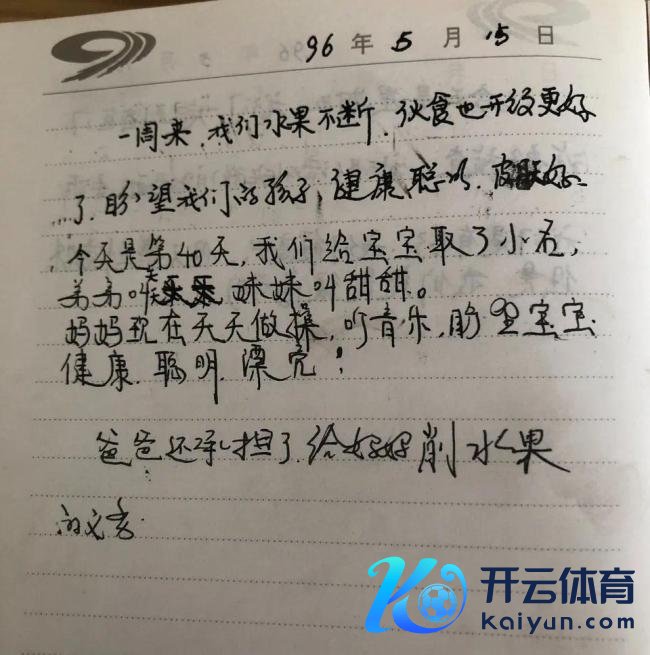 96 年 5 月 15 日
一周来，我们水果不断，伙食也开始更好
了，盼望我们的孩子，健康，聪明，皮肤好。
今天是第40天，我们给宝宝取了小名，
弟弟叫乐乐 妹妹叫甜甜。
妈妈现在天天做操，听音乐，盼望宝宝
健康、聪明、漂亮！
爸爸还承担了给妈妈削水果
的义务.
开云体育
kaiyun.com